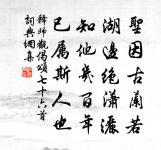 聖因古蘭若
湖邊絕瀟灑
知他幾百年
已屬斯人也
釋師觀偈頌七十六首
詞典網集